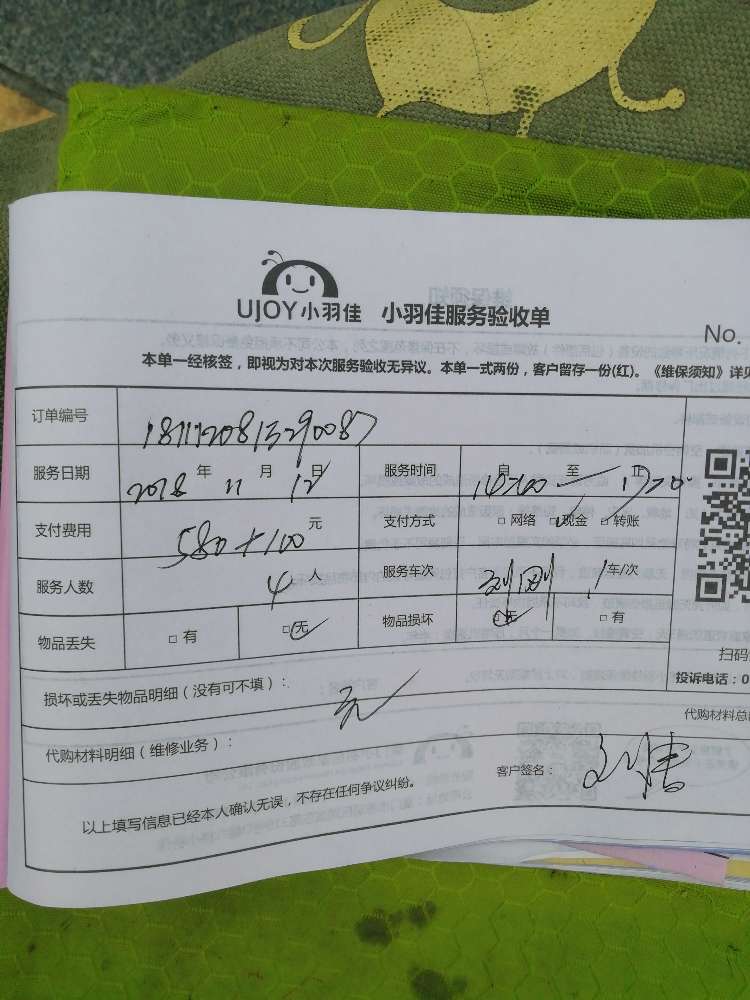 UJOY小羽佳 小羽佳服务验收单
No.
本单一经核签，即视为对本次服务验收无异议。本单一式两份，客户留存一份(红)。《维保须知》详见
订单编号
服务日期 2018 年 11 月 12 日 服务时间 自 14:00 至 17:20 止
支付费用 580+100 元 支付方式 □ 网络 □ 现金 □ 转账
服务人数 4 人 服务车次 刘刚 1 车/次
物品丢失 □ 有 □ 无 物品损坏 □ 无 □ 有
扫码
损坏或丢失物品明细（没有可不填）： 无
投诉电话：0
代购材料总
代购材料明细（维修业务）：
客户签名：
以上填写信息已经本人确认无误，不存在任何争议纠纷。